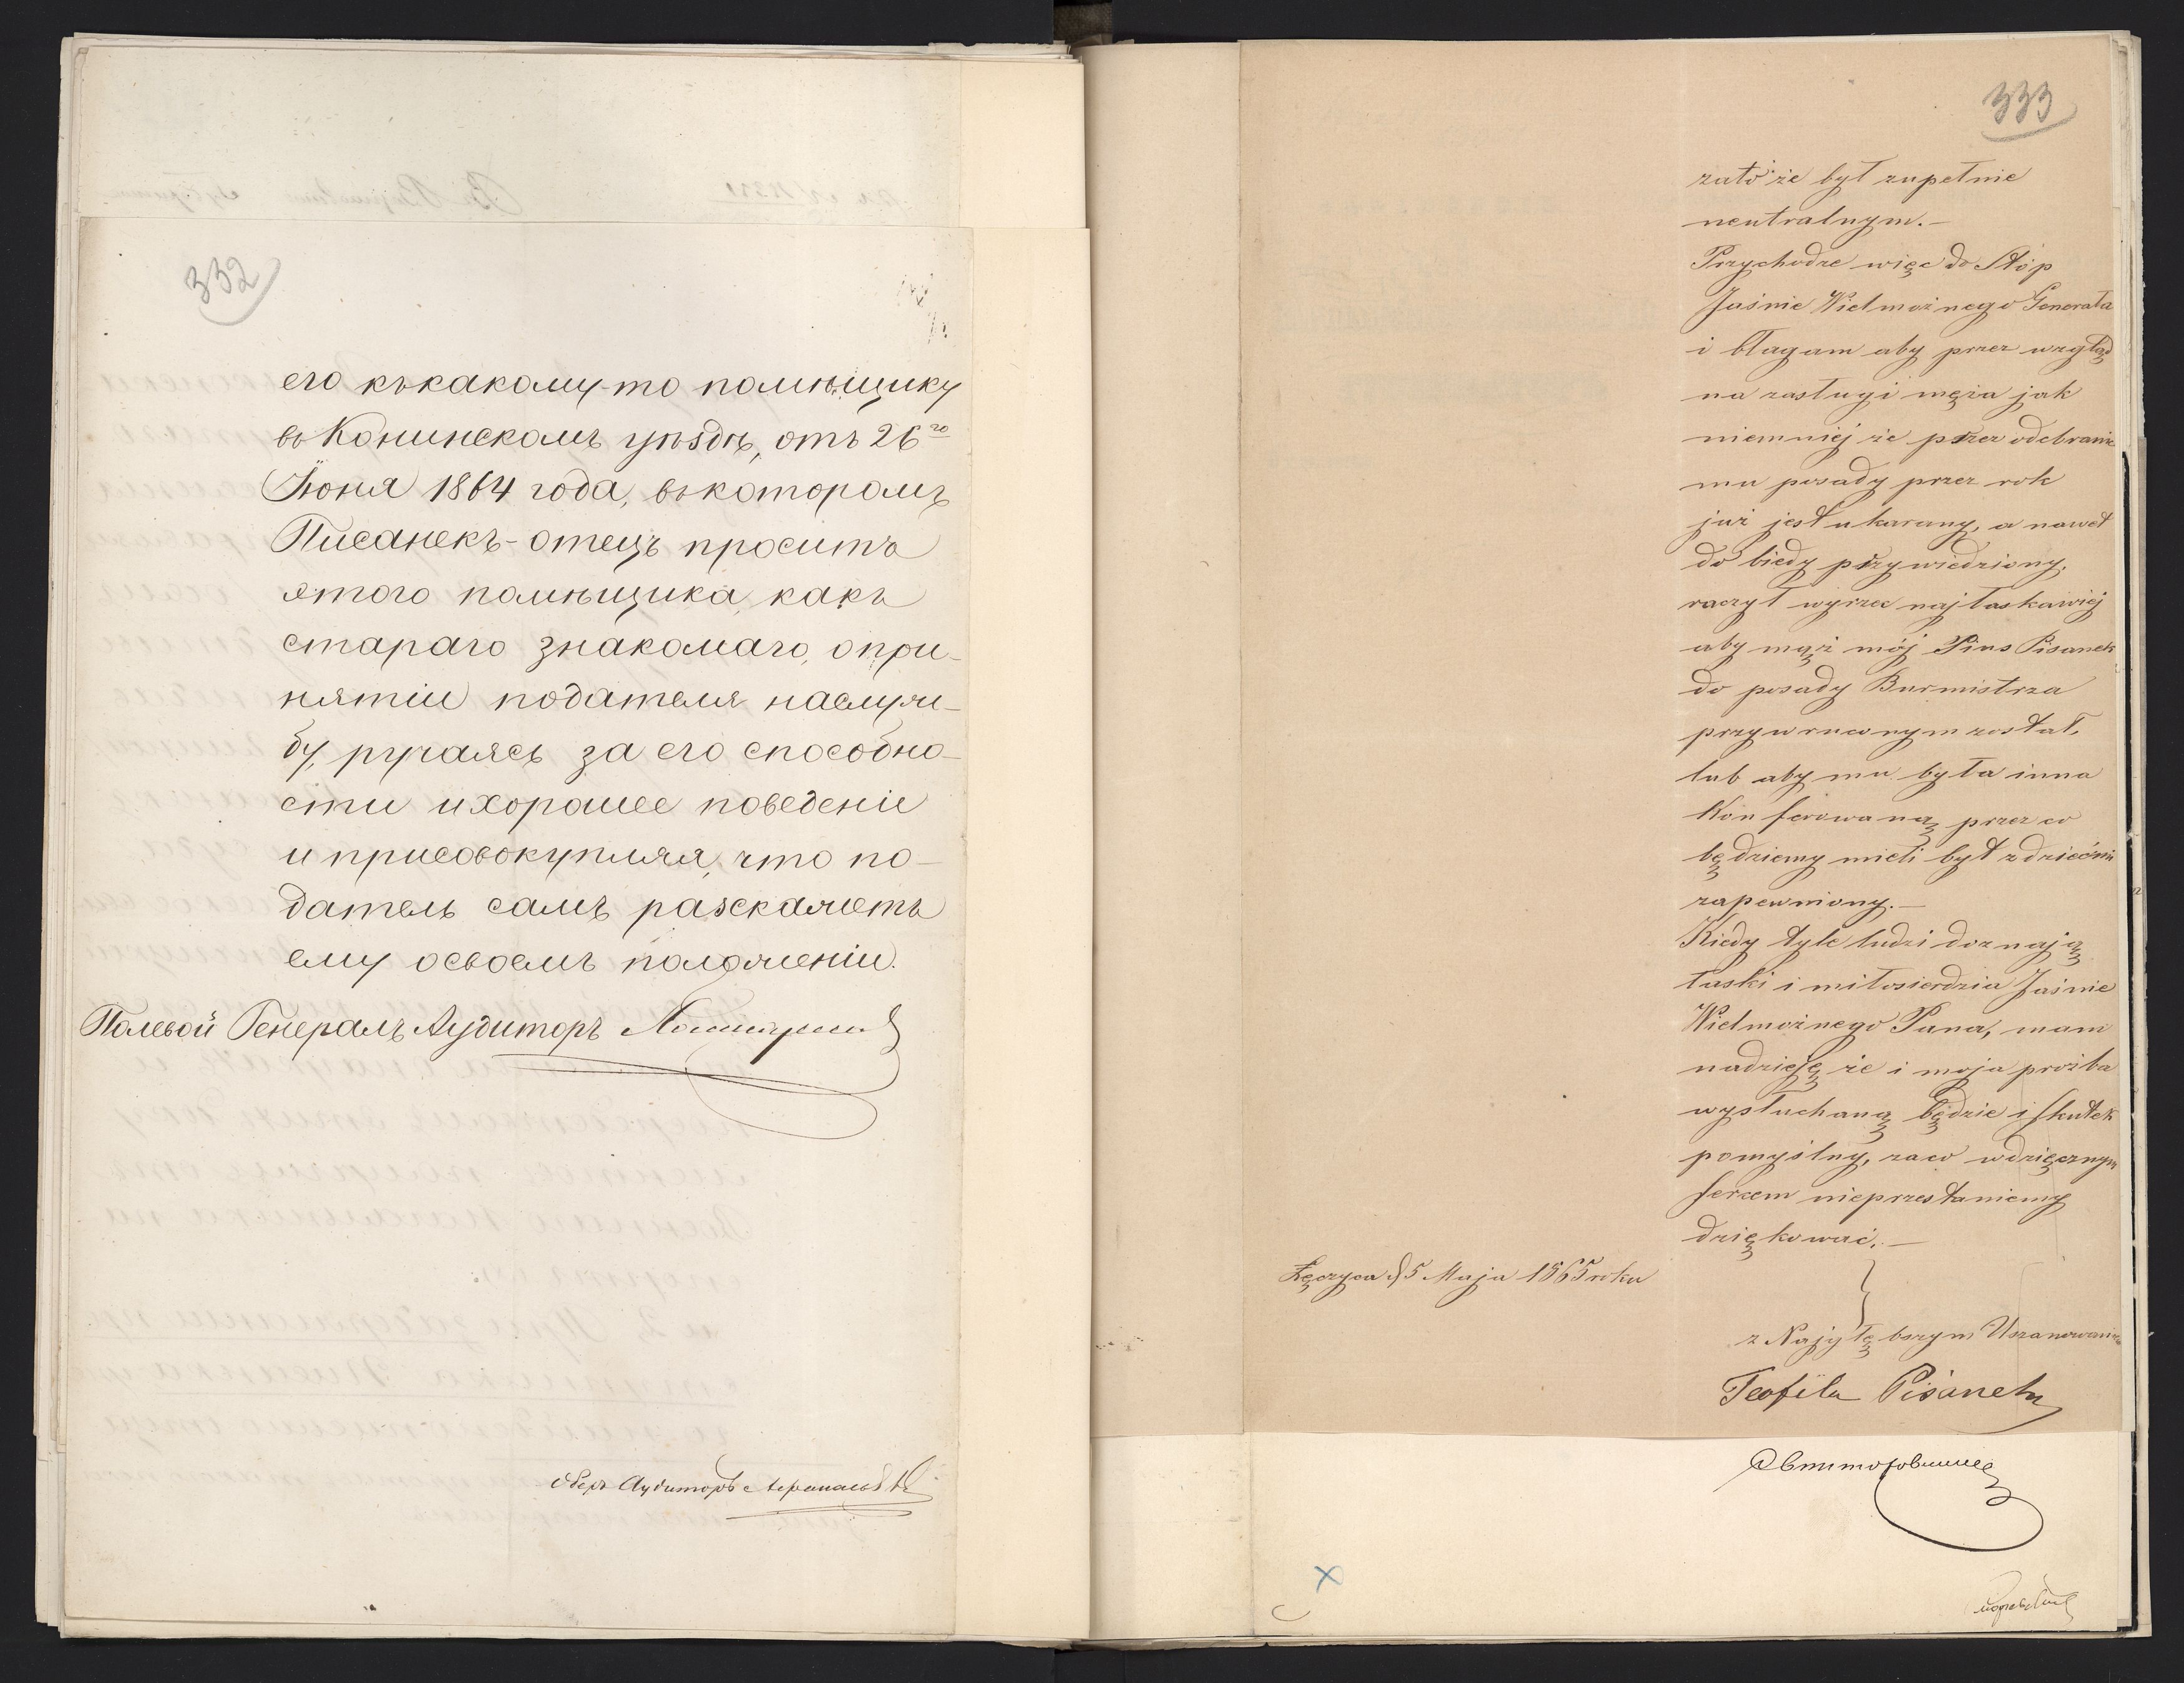 332
его къ какому-то помѣщику
въ Конинскомъ уѣздѣ, отъ 26го
Іюня 1864 года, въ которомъ
Писанекъ-отецъ проситъ
этого помѣщика, какъ
стараго знакомаго, о при-
нятіи подателя на служ-
бу, ручаясь за его способно-
сти и хорошее поведеніе
и присовокупляя, что по-
датель самъ разскажетъ
ему о своемъ положеніи.
Полевой Генералъ Аудиторъ
Оберъ Аудиторъ
333
zato że był zupełnie
neutralnym.—
Przychodzę więc do Stóp
Jaśnie Wielmożnego Generała
i błagam aby przez wzgląd
na zasługi męża jak
niemniéj że przez odebranie
mu posady przez rok
już jest ukarany, a nawet
do biedy przywiedziony,
raczył wyrzec najłaskawiéj
aby mąż mój Pius Pisanek
do posady Burmistrza
przywrucnym został,
lub aby mu była inna
Konferowaną przez co
będziemy mieli byt z dziećmi
zapewniony.—
Kiedy tyle ludzi doznają
łaski i miłosierdzia Jaśnie
Wielmożnego Pana, mam
nadzieję że i moja proźba
wysłuchaną będzie i skutek
pomyślny, zaco wdzięcznym
sercem nieprzestaniemy
dziękować.—
Łęczyca d 5 Maja 1865 roku
z Najgłębszym Uszanowaniem
Teofila Pisanek